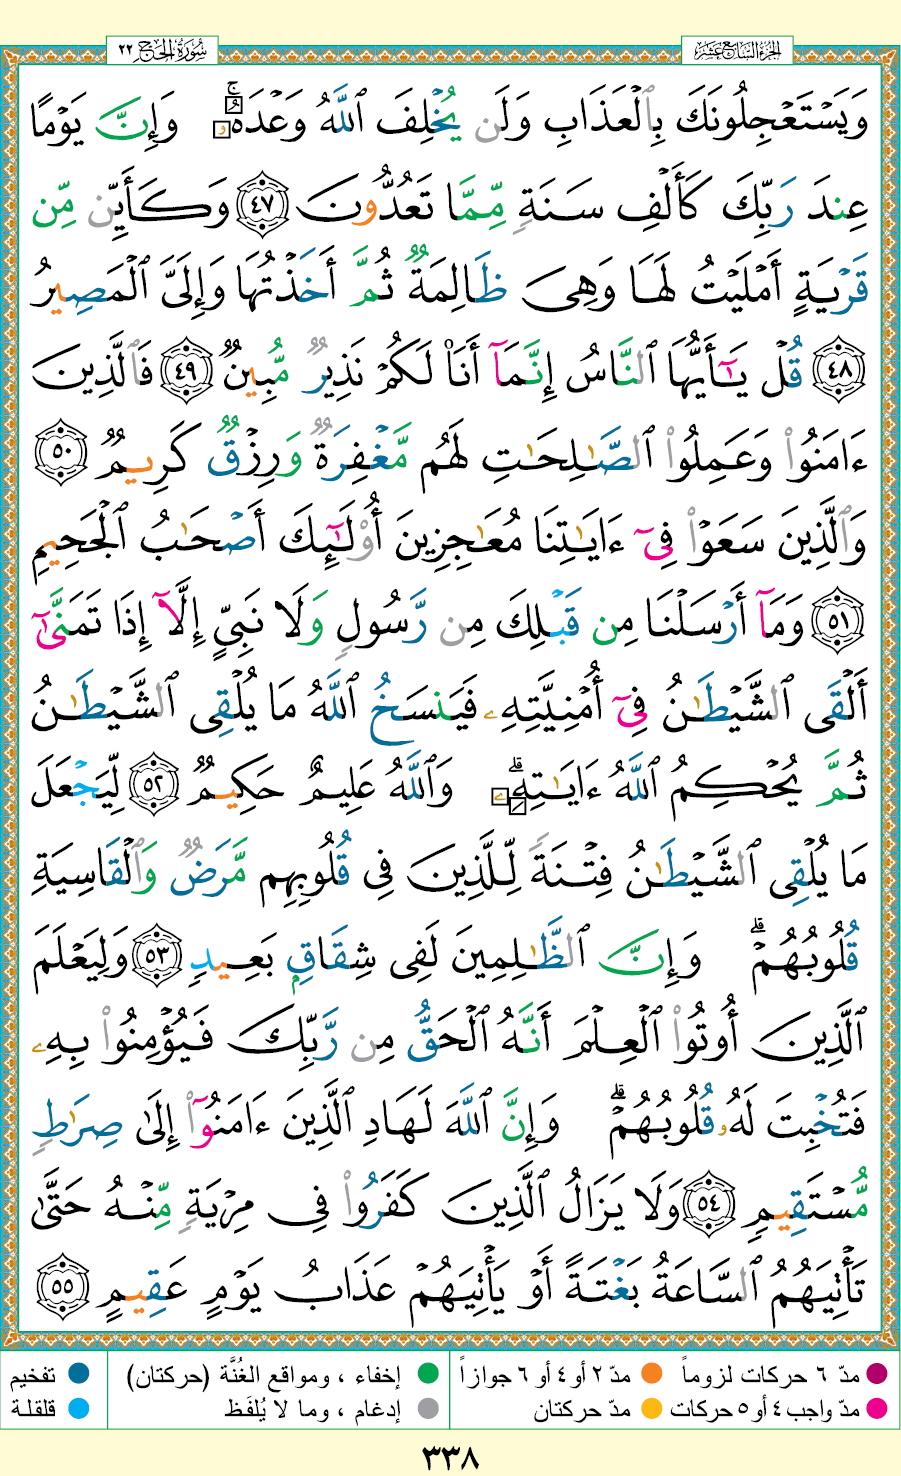 الجزء السابع عشر
سورة الحج ٢٢
وَيَسْتَعْجِلُونَكَ بِٱلْعَذَابِ وَلَن يُخْلِفَ ٱللَّهُ وَعْدَهُۥۚ وَإِنَّ يَوْمًا
عِندَ رَبِّكَ كَأَلْفِ سَنَةٍ مِّمَّا تَعُدُّونَ ٤٧ وَكَأَيِّن مِّن
قَرْيَةٍ أَمْلَيْتُ لَهَا وَهِىَ ظَالِمَةٌ ثُمَّ أَخَذْتُهَا وَإِلَىَّ ٱلْمَصِيرُ
٤٨ قُلْ يَـٰٓأَيُّهَا ٱلنَّاسُ إِنَّمَآ أَنَا۠ لَكُمْ نَذِيرٌ مُّبِينٌ ٤٩ فَٱلَّذِينَ
ءَامَنُوا۟ وَعَمِلُوا۟ ٱلصَّـٰلِحَـٰتِ لَهُم مَّغْفِرَةٌ وَرِزْقٌ كَرِيمٌ ٥٠
وَٱلَّذِينَ سَعَوْا۟ فِىٓ ءَايَـٰتِنَا مُعَـٰجِزِينَ أُو۟لَـٰٓئِكَ أَصْحَـٰبُ ٱلْجَحِيمِ
٥١ وَمَآ أَرْسَلْنَا مِن قَبْلِكَ مِن رَّسُولٍ وَلَا نَبِىٍّ إِلَّآ إِذَا تَمَنَّىٰٓ
أَلْقَى ٱلشَّيْطَـٰنُ فِىٓ أُمْنِيَّتِهِۦ فَيَنسَخُ ٱللَّهُ مَا يُلْقِى ٱلشَّيْطَـٰنُ
ثُمَّ يُحْكِمُ ٱللَّهُ ءَايَـٰتِهِۦۗ وَٱللَّهُ عَلِيمٌ حَكِيمٌ ٥٢ لِّيَجْعَلَ
مَا يُلْقِى ٱلشَّيْطَـٰنُ فِتْنَةً لِّلَّذِينَ فِى قُلُوبِهِم مَّرَضٌ وَٱلْقَاسِيَةِ
قُلُوبُهُمْۗ وَإِنَّ ٱلظَّـٰلِمِينَ لَفِى شِقَاقٍۭ بَعِيدٍ ٥٣ وَلِيَعْلَمَ
ٱلَّذِينَ أُوتُوا۟ ٱلْعِلْمَ أَنَّهُ ٱلْحَقُّ مِن رَّبِّكَ فَيُؤْمِنُوا۟ بِهِۦ
فَتُخْبِتَ لَهُۥ قُلُوبُهُمْۗ وَإِنَّ ٱللَّهَ لَهَادِ ٱلَّذِينَ ءَامَنُوٓا۟ إِلَىٰ صِرَٰطٍ
مُّسْتَقِيمٍ ٥٤ وَلَا يَزَالُ ٱلَّذِينَ كَفَرُوا۟ فِى مِرْيَةٍ مِّنْهُ حَتَّىٰ
تَأْتِيَهُمُ ٱلسَّاعَةُ بَغْتَةً أَوْ يَأْتِيَهُمْ عَذَابُ يَوْمٍ عَقِيمٍ ٥٥
مدّ ٦ حركات لزوماً مدّ ٢ أو ٤ أو ٦ جوازاً إخفاء ، ومواقع الغُنَّة (حركتان) تفخيم
مدّ واجب ٤ أو ٥ حركات مدّ حركتان إدغام ، وما لا يُلفَظ قلقلة
٣٣٨